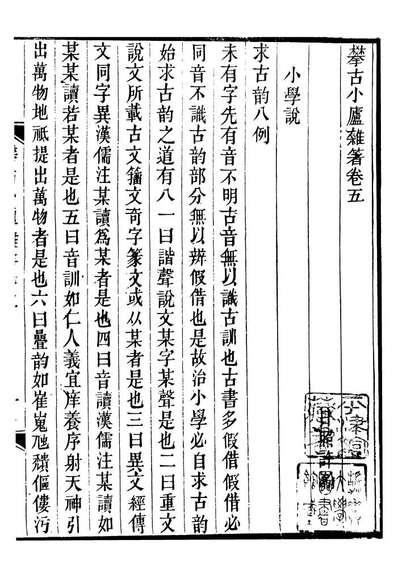 攀古小廬雜著卷五
小學說
求古韵八例
未有字先有音不明古音無以識古訓也古書多假借假借必
同音不識古韵部分無以辨假借也是故治小學必自求古韵
始求古韵之道有八一曰諧聲說文某字某聲是也二曰重文
說文所載古文籀文奇字篆文或从某者是也三曰異文經傳
文同字異漢儒注某讀爲某者是也四曰音讀漢儒注某讀如
某某讀若某者是也五曰音訓如仁人義宜庠養序射天神引
出萬物地祇提出萬物者是也六曰疊韵如崔嵬虺隤傴僂污